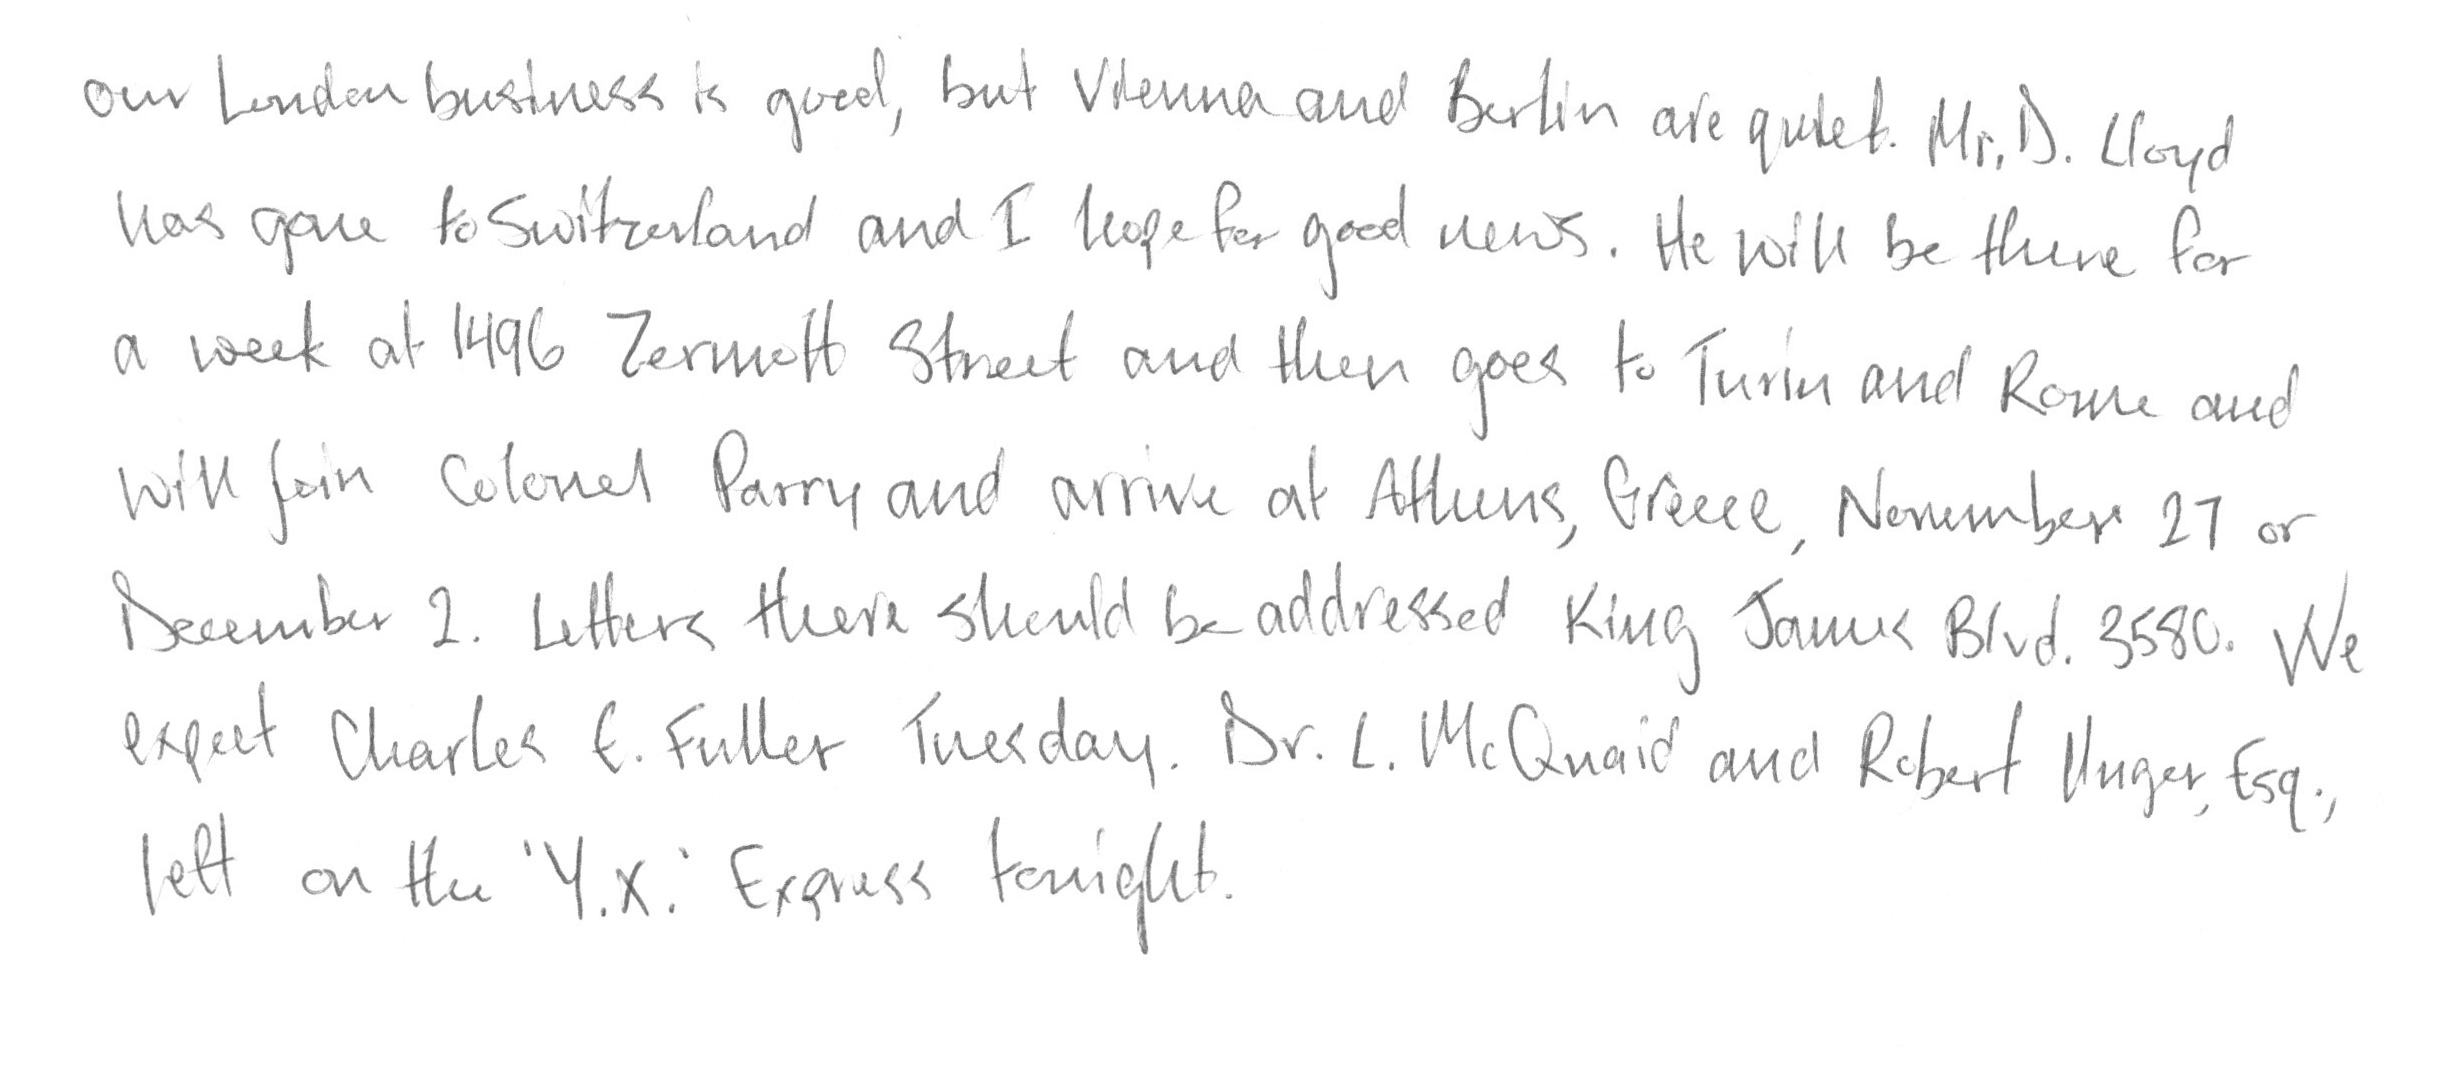 our London business is good, but Vienna and Berlin are quiet. Mr. D. Lloyd
has gone to Switzerland and I hope for good news. He will be there for
a week at 1496 Zermott Street and then goes to Turin and Rome and
will join Colonel Parry and arrive at Athens, Greece, November 27 or
December 2. Letters there should be addressed King James Blvd. 3580. We
expect Charles E. Fuller Tuesday. Dr. L. McQuaid and Robert Unger, Esq.,
left on the 'Y.X.' Express tonight.